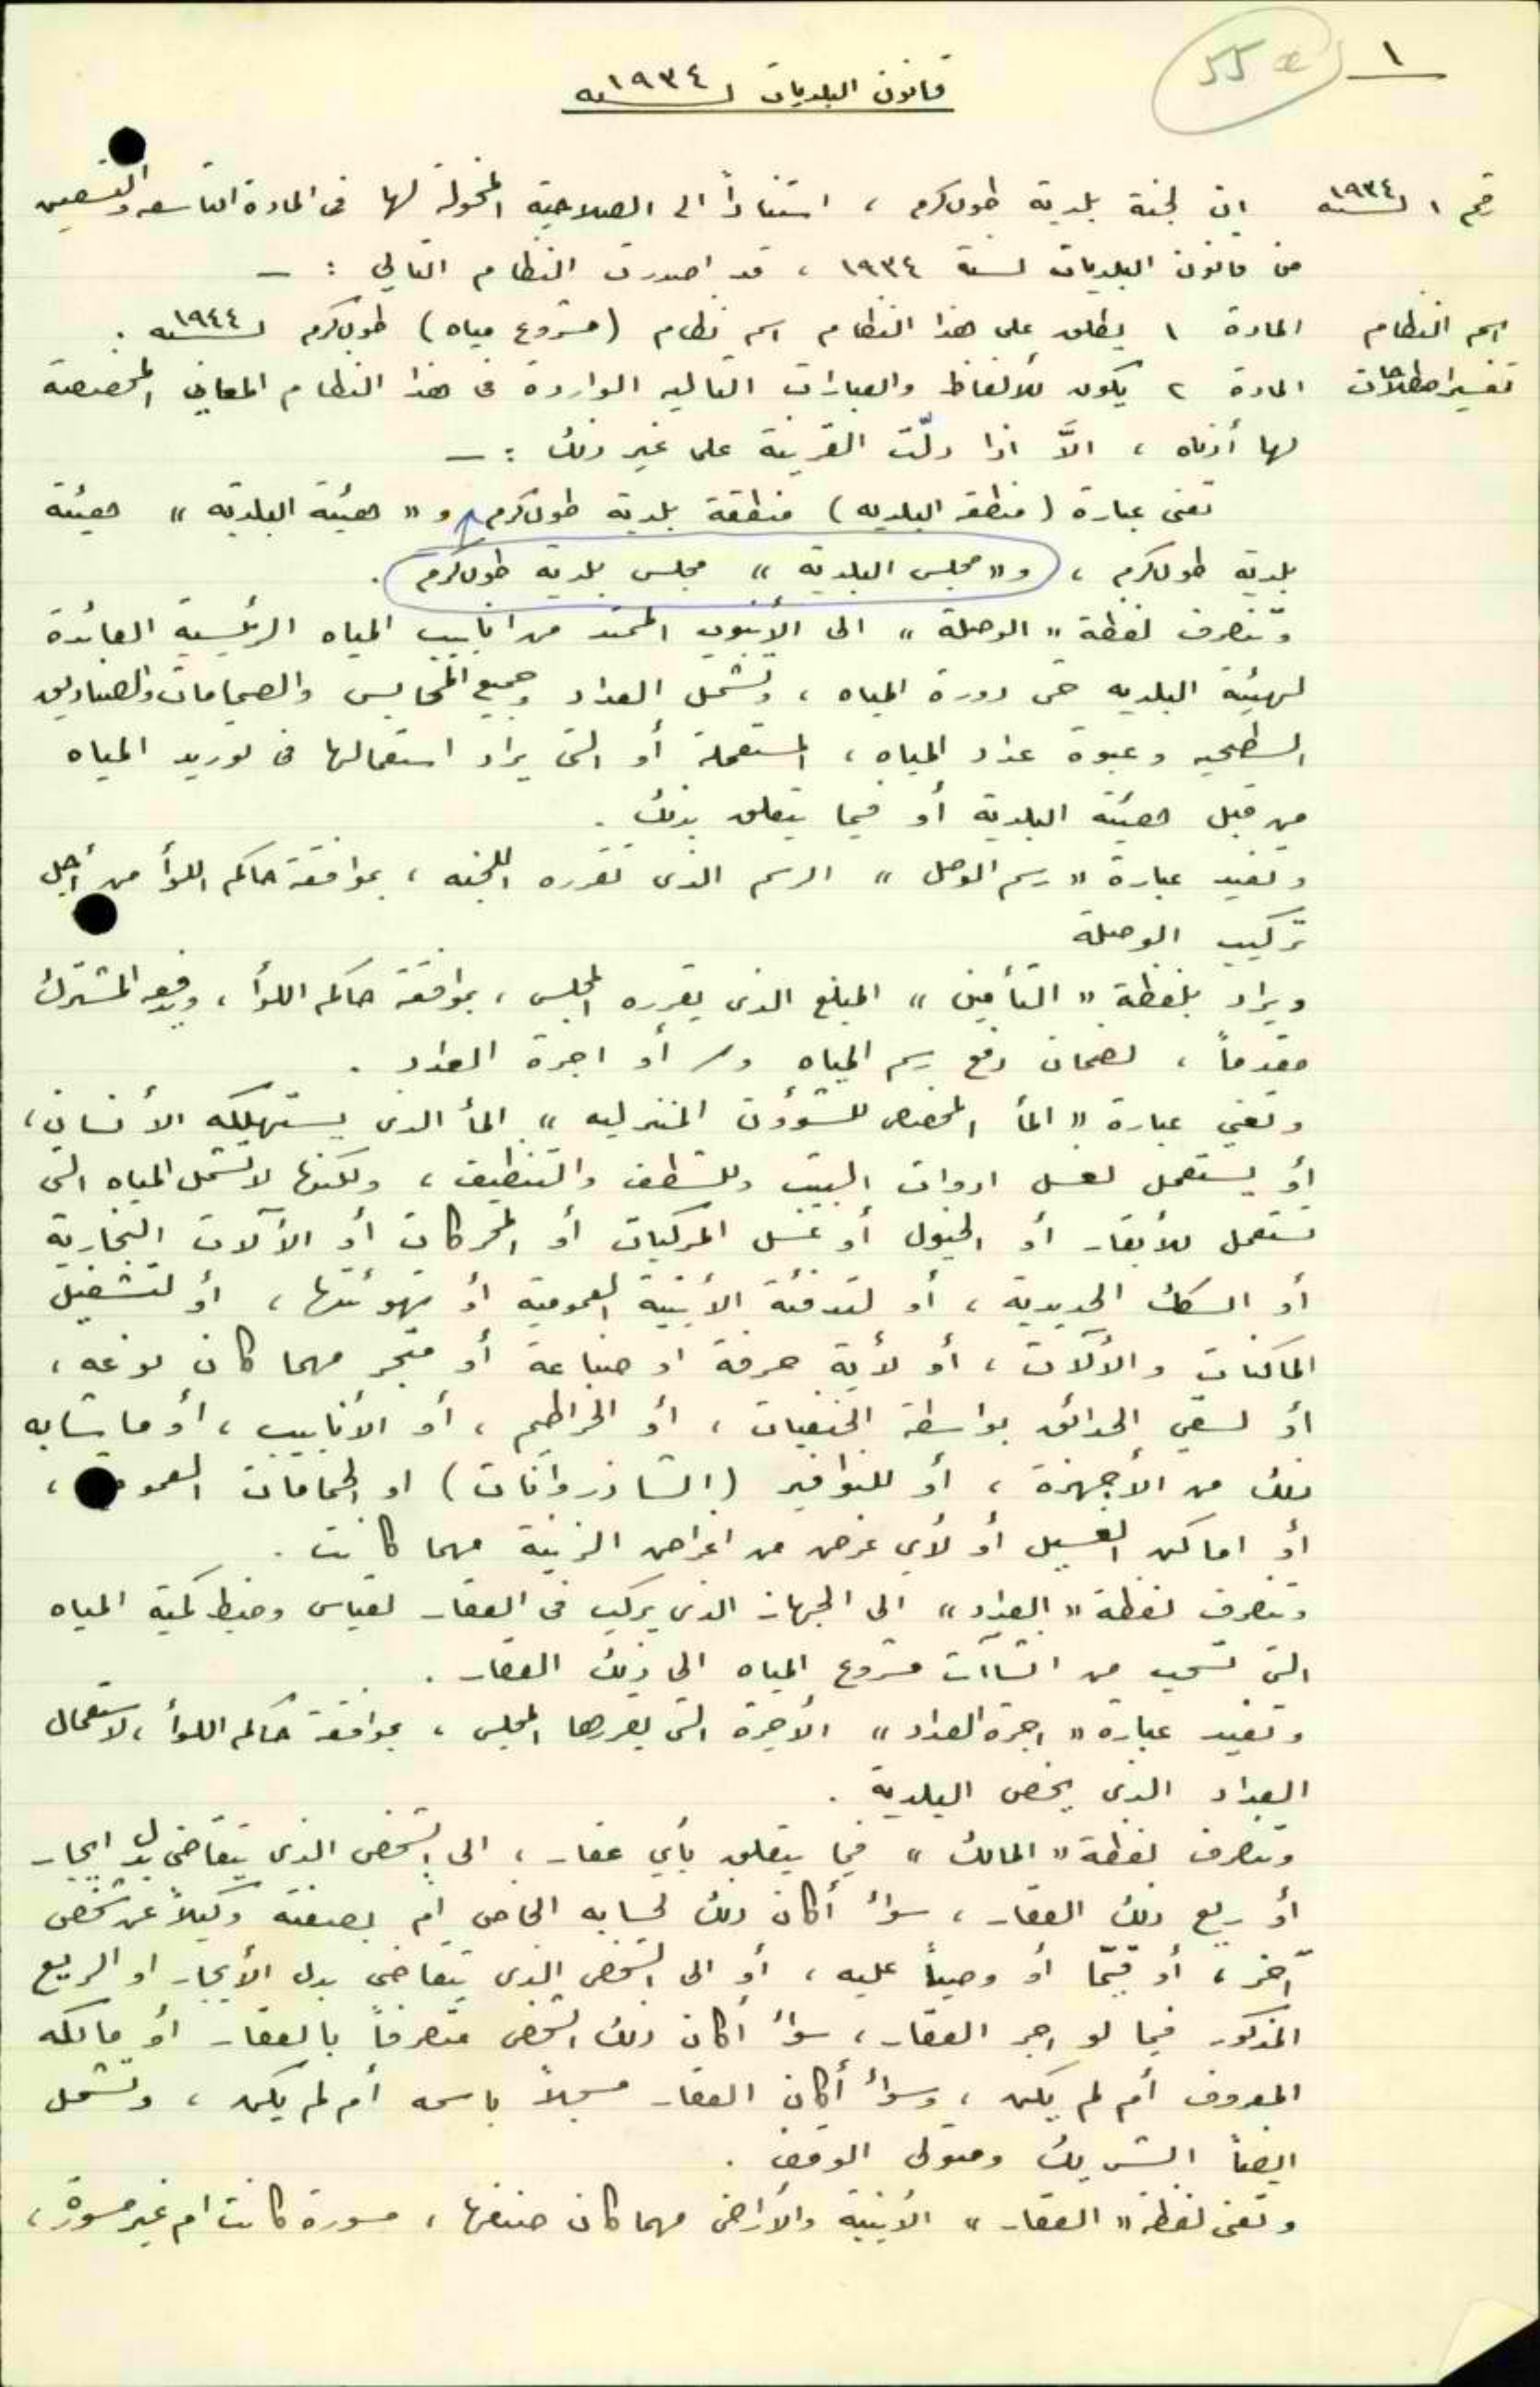 ١
55a
قانون البلديات لسنه ١٩٣٤
رقم ١ لسنه ١٩٣٤ ان لجنة بلدية طولكرم ، استناداً الى الصلاحية المخولة لها فى المادة التاسعه والتسعين
من قانون البلديات لسنة ١٩٣٤ ، قد اصدرت النظام التالي : —
اسم النظام المادة ١ يطلق على هذا النظام اسم نظام (مشروع مياه) طولكرم لسنه ١٩٤٤ .
تفسير اصطلاحات المادة ٢ يكون للألفاظ والعبارات التاليه الواردة فى هذا النظام المعاني المخصصة
لها أدناه ، الاَّ اذا دلّت القرينة على غير ذلك : —
تعنى عبارة (منطقة البلديه) منطقة بلدية طولكرم و " هيئة البلدية " هيئة
بلدية طولكرم ، و " مجلس البلدية " مجلس بلدية طولكرم .
وتنصرف لفظة " الوصلة " الى الأنبوب الممتد من انابيب المياه الرئيسية العائدة
لهيئة البلديه حتى دورة المياه ، وتشمل العداد وجميع المحابس والصمامات والصناديق
السطحيه وعبوة عداد المياه ، المستعملة أو التى يراد استعمالها فى توريد المياه
من قبل هيئة البلدية أو فيما يتعلق بذلك .
وتفيد عبارة " رسم الوصل " الرسم الذى تقرره اللجنه ، بموافقة حاكم اللوأ من أجل
تركيب الوصلة
ويراد بلفظة " التأمين " المبلغ الذى يقرره المجلس ، بموافقة حاكم اللوأ ، ويدفعه المشترك
مقدماً ، لضمان دفع رسم المياه و/ أو اجرة العداد .
وتعني عبارة " المأ المخصص للشؤون المنزليه " المأ الذى يستهلكه الأنسان ،
أو يستعمل لغسل ادوات البيت وللشطف والتنظيف ، ولكنها لا تشمل المياه التى
تستعمل للأبقار أو الخيول أو غسل المركبات أو المحركات أو الآلات البخارية
أو السكك الحديدية ، أو لتدفئة الأبنية العمومية أو تهوئتها ، أو لتشغيل
الماكنات والألآت ، أو لأية حرفة او صناعة أو متجر مهما كان نوعه ،
أو لسقي الحدائق بواسطة الحنفيات ، أو الخراطيم ، أو الأنابيب ، أو ما شابه
ذلك من الأجهزة ، أو للنوافير (الشاذروانات) او الحمامات العمو ،
أو اماكن الغسيل أو لأي غرض من اغراض الزينة مهما كانت .
وتنصرف لفظة " العداد " الى الجهاز الذى يركب فى العقار لقياس وضبط كمية المياه
التى تسحب من انشاآت مشروع المياه الى ذلك العقار .
وتفيد عبارة " اجرة العداد " الأجرة التى يقررها المجلس ، بموافقة حاكم اللوأ ، لاستعمال
العداد الذى يخص البلدية .
وتنصرف لفظة " المالك " فيما يتعلق بأي عقار ، الى الشخص الذى يتقاضى بدل ايجار
أو ريع ذلك العقار ، سوأ أكان ذلك لحسابه الخاص أم بصفته وكيلاً عن شخص
آخر ، أو قيّما أو وصياً عليه ، أو الى الشخص الذى يتقاضى بدل الأيجار او الريع
المذكور فيما لو اجر العقار ، سوأ أكان ذلك الشخص متصرفاً بالعقار أو مالكه
المعروف أم لم يكن ، وسوأ أكان العقار مسجلاً باسمه أم لم يكن ، وتشمل
ايضاً الشريك ومتولى الوقف .
وتعنى لفظة " العقار " الأبنية والأراضى مهما كان صنفها ، مسورة كانت ام غير مسورة ،